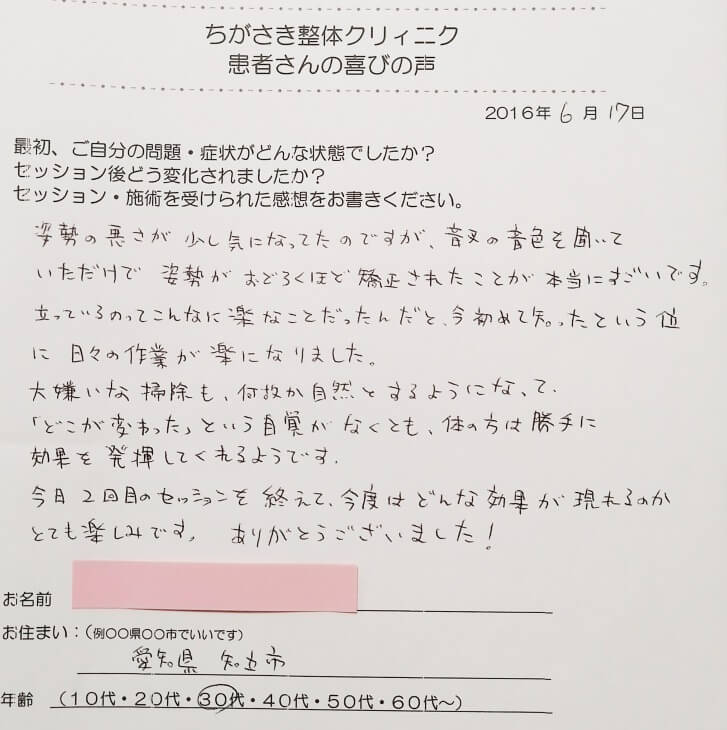 ちがさき整体クリィニク
患者さんの喜びの声
2016年6月17日
最初、ご自分の問題・症状がどんな状態でしたか?
セッション後どう変化されましたか?
セッション・施術を受けられた感想をお書きください。
姿勢の悪さが少し気になってたのですが、音叉の音色を聞いて
いただけで 姿勢がおどろくほど矯正されたことが本当にすごいです。
立っているのってこんなに楽なことだったんだと、今初めて知ったという位
に日々の作業が楽になりました。
大嫌いな掃除も、何故か自然とするようになって、
「どこが変わった」という自覚がなくとも、体の方は勝手に
効果を発揮してくれるようです。
今日2回目のセッションを終えて、今度はどんな効果が現れるのか
とても楽しみです。 ありがとうございました!
お名前
お住まい:(例〇〇県〇〇市でいいです)
愛知県 知立市
年齢 (10代・20代・30代・40代・50代・60代〜)